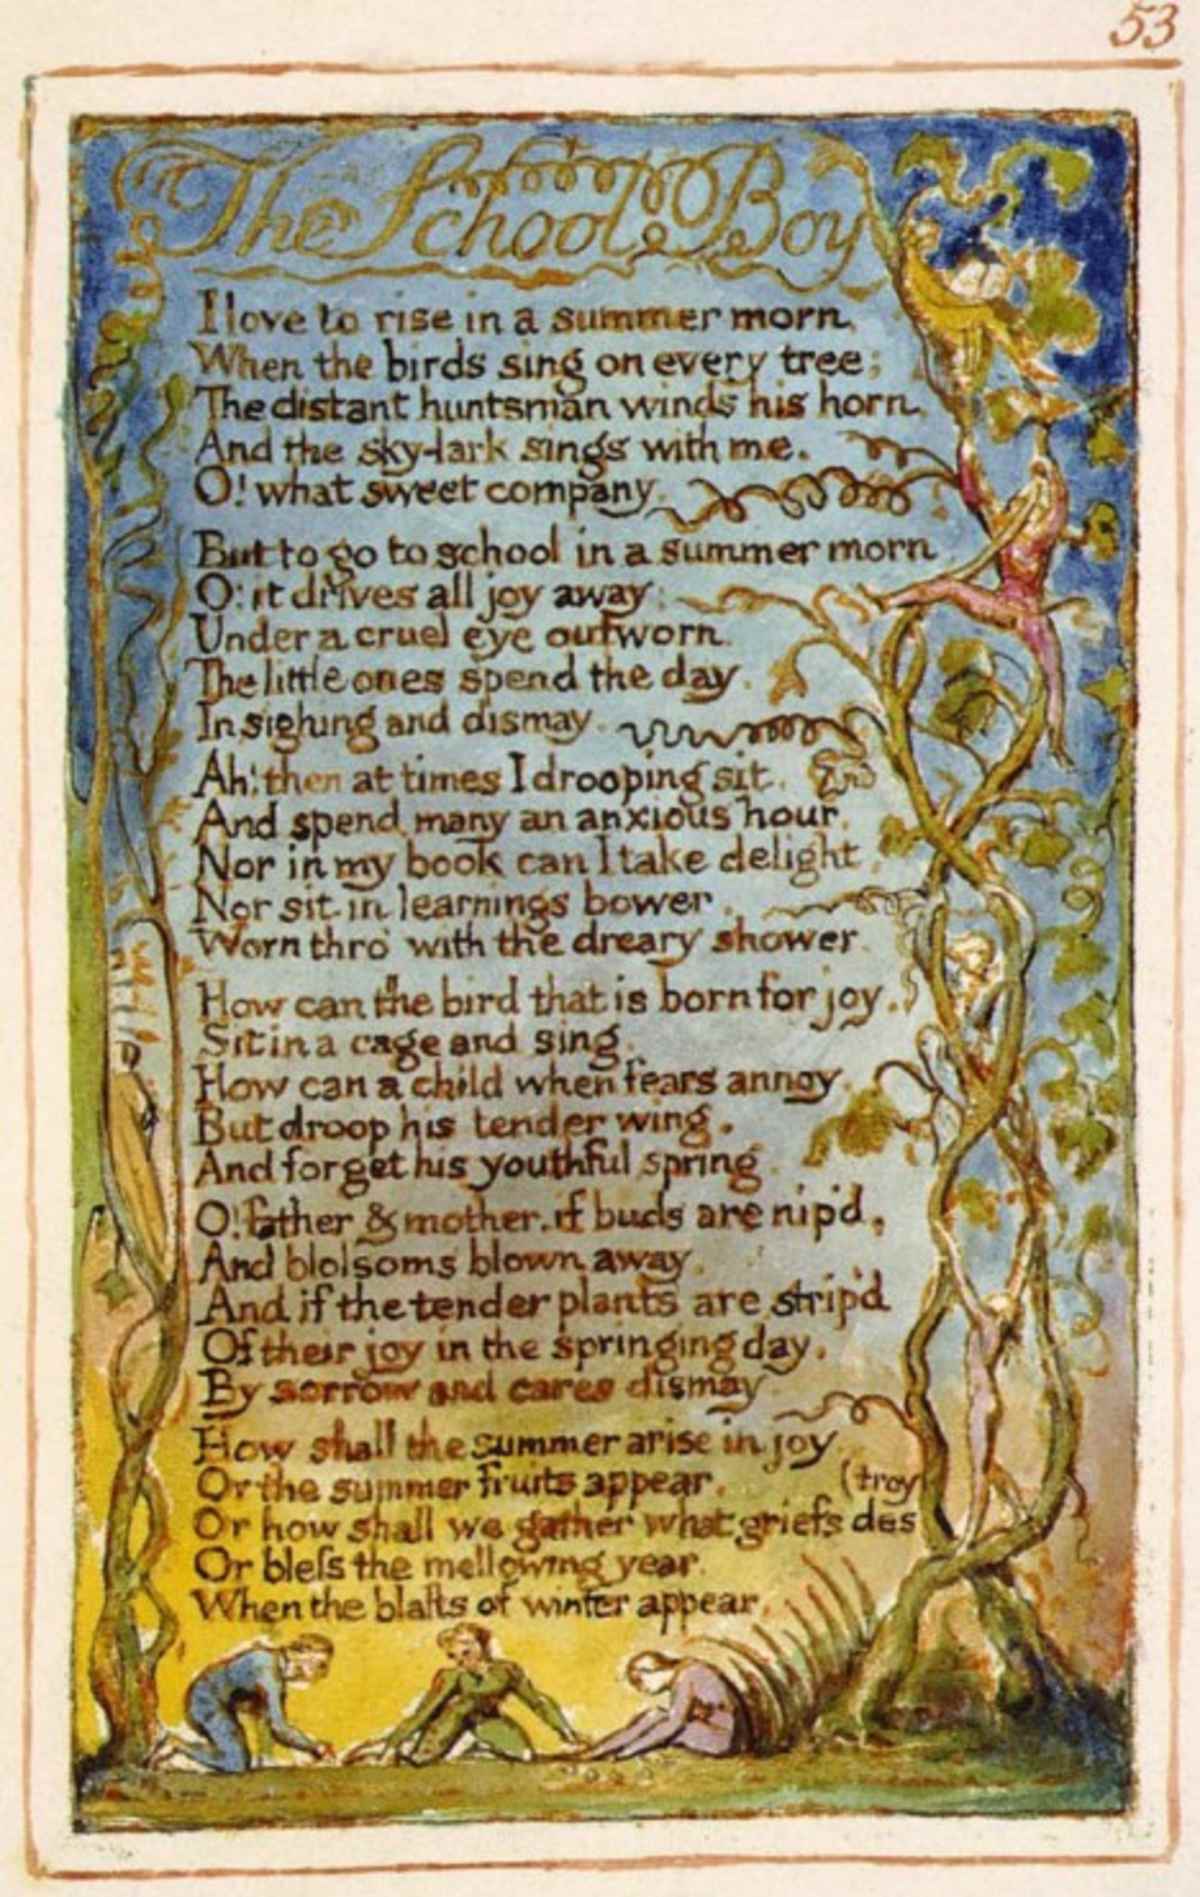 53
The School Boy
I love to rise in a summer morn,
When the birds sing on every tree;
The distant huntsman winds his horn,
And the sky-lark sings with me.
O! what sweet company.
But to go to school in a summer morn
O! it drives all joy away:
Under a cruel eye outworn.
The little ones spend the day.
In sighing and dismay.
Ah! then at times I drooping sit.
And spend many an anxious hour.
Nor in my book can I take delight
Nor sit in learnings bower.
Worn thro' with the dreary shower
How can the bird that is born for joy.
Sit in a cage and sing.
How can a child when fears annoy
But droop his tender wing.
And forget his youthful spring
O! father & mother. if buds are nip'd,
And bloſsoms blown away.
And if the tender plants are strip'd
Of their joy in the springing day.
By sorrow and cares dismay
How shall the summer arise in joy
Or the summer fruits appear.
(troy
Or how shall we gather what griefs des
Or bleſs the mellowing year.
When the blaſts of winter appear.